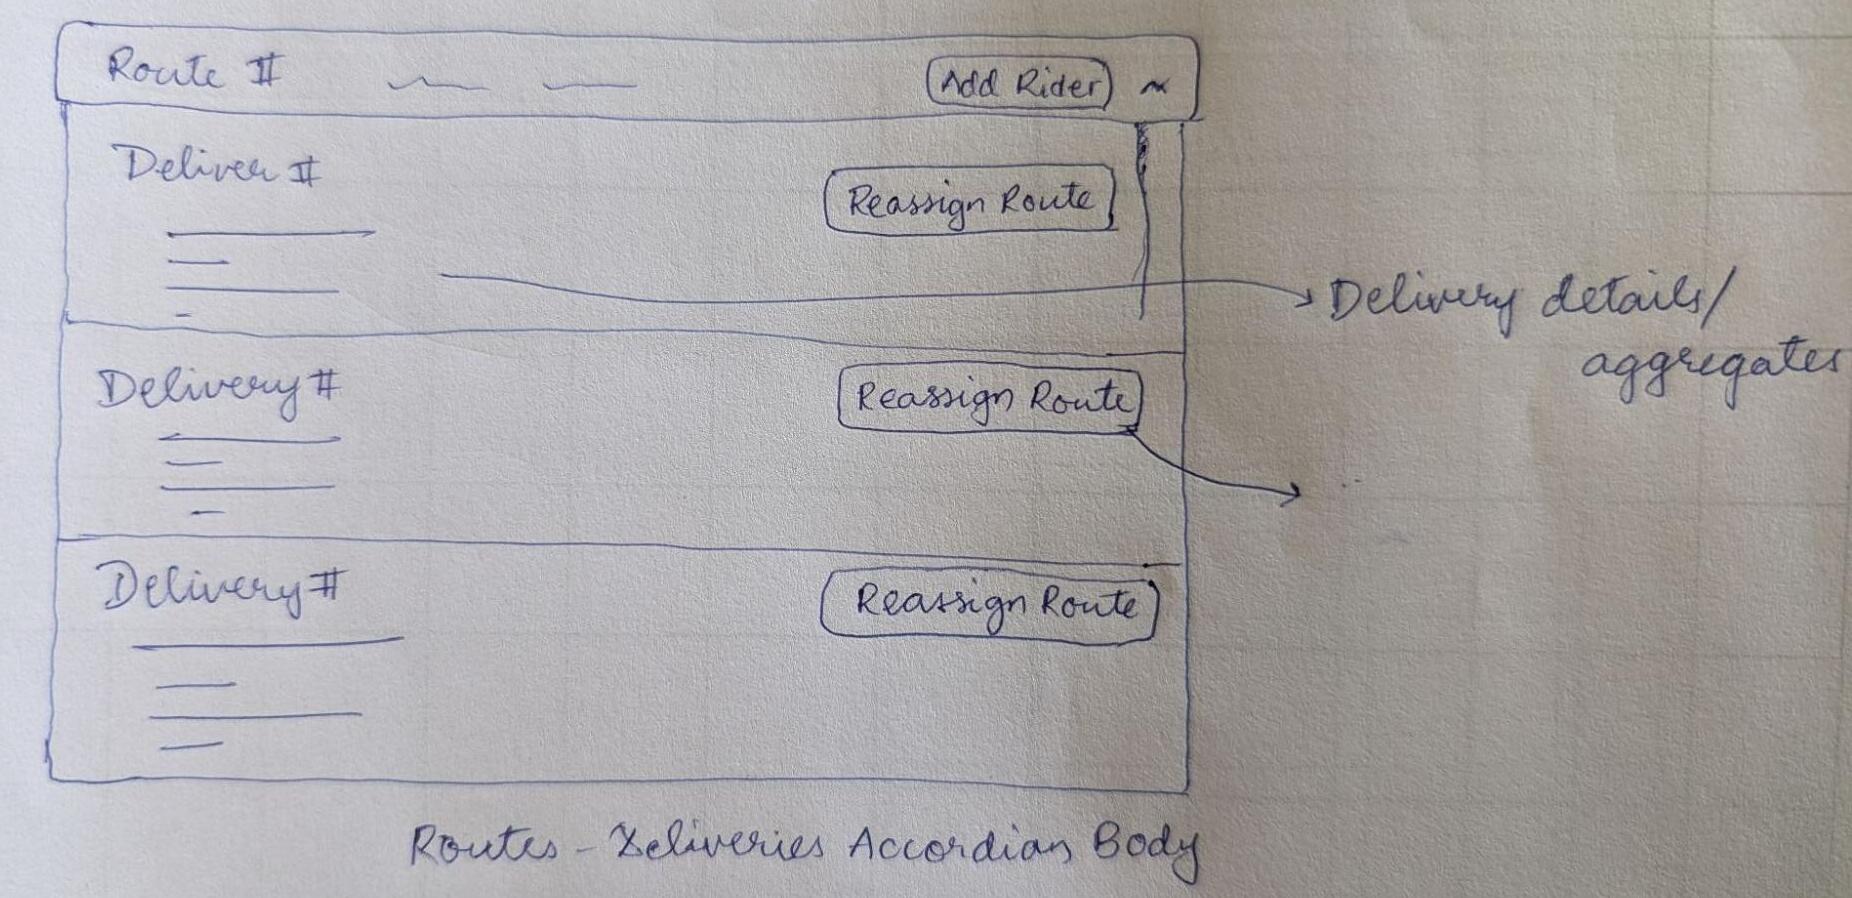 Route # Add Rider
Deliver #
Reassign Route
Delivery details/
aggregates
Delivery #
Reassign Route
Delivery #
Reassign Route
Routes - Deliveries Accordian Body